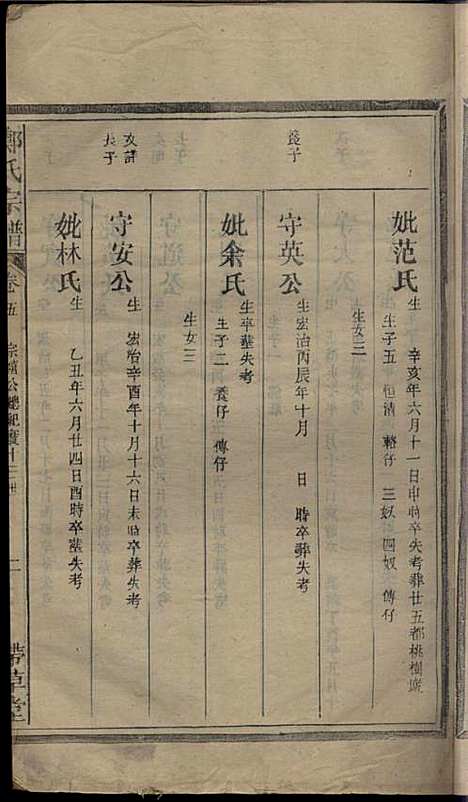 妣范氏 生 辛亥年六月十一日申時卒失考葬廿五都桃樹
生子五 恒清 輅仔 三奴 四奴 傅仔
生女三
養子
守英公 生 宏治丙辰年十月 日 時卒葬失考
妣余氏 生卒塟失考
生子二 養仔 傅仔
生女三
攷諱
長子
守安公 生 宏治辛酉年十月十六日未時卒葬失考
妣林氏 生 乙丑年六月廿四日酉時卒塟失考
鄭氏宗譜 卷五
帶草堂